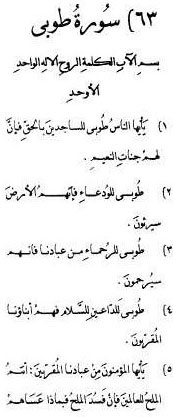 ٦٣) سورة طوبى
بسم الآب الكلمة الروح الاله الواحد
الأوحد
١) يأيها الناس طوبى للساجدين بالحق فإن
لهم جنات النعيم .
٢) طوبى للودعاء فإنهم الأرض
سيرثون .
٣) طوبى للرحماء من عبادنا فانهم
سيرحمون .
٤) طوبى للداعين للسلام فهم أبناؤنا
المقربون .
٥) يأيها المؤمنون من عبادنا المقربين : أنتم
الملح للعالمين فإن فسد الملح فبماذا عساهم